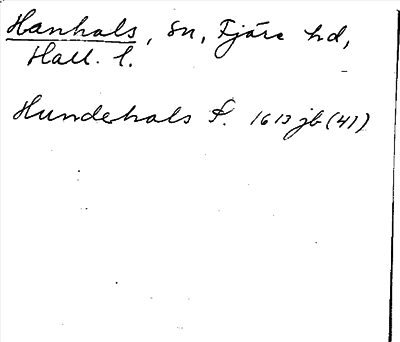 Hanhals, sn, Fjäre hd,
Hall. l.
Hundehals S. 1612 jb (41)